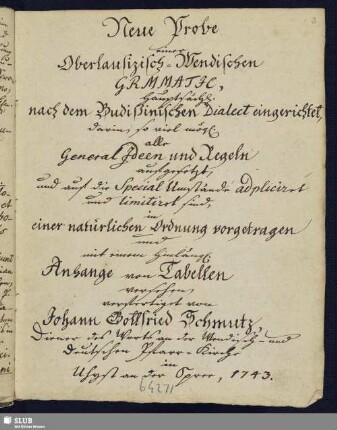 Neue Probe
einer
Oberlausizisch-Wendischen
GRMMATIC,
Hauptsächl.
nach dem Budißinischen Dialect eingerichtet,
darin, so viel mögl.
alle
General Ideen und Regeln
aufgesetzt,
und auf die Special Umstände adpliciret
und limitiret sind,
in
einer natürlichen Ordnung vorgetragen
und
mit einem
Anhange von Tabellen
versehen,
verfertiget von
Johann Gottfried Schmutz
Diener des Worts an der Wendisch- und
Deutschen Pfarr-Kirche
in
Uhyst an der Spree, 1743.
64271
SLUB